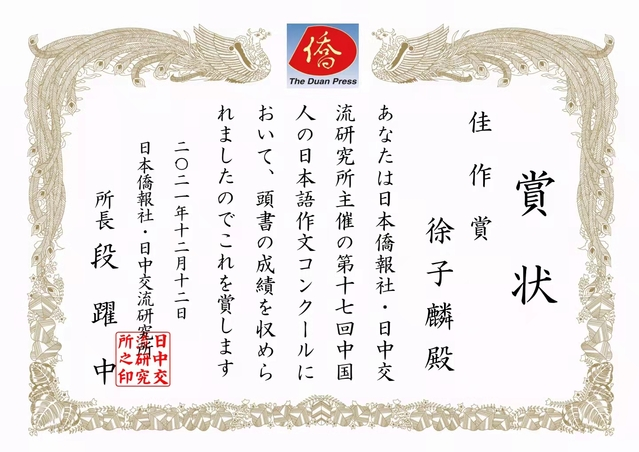 僑
The Duan Press
賞状
佳作賞
徐子麟殿
あなたは日本僑報社・日中交
流研究所主催の第十七回中国
人の日本語作文コンクールに
おいて、頭書の成績を収めら
れましたのでこれを賞します
二〇二一年十二月十二日
日本僑報社・日中交流研究所
所長段躍中
日中交
流研究
所之印